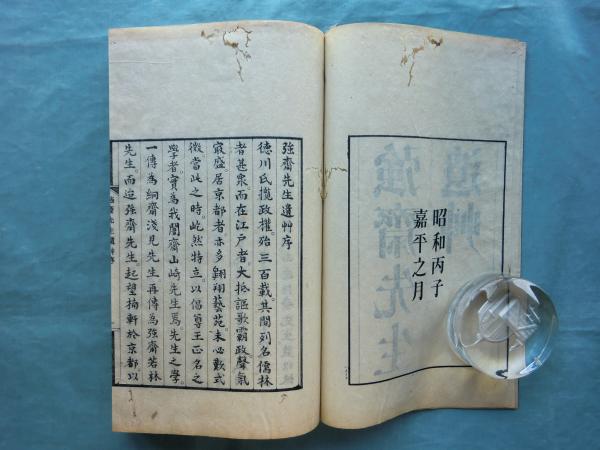 昭和丙子
嘉平之月
強齋先生遺艸序
德川氏攬政權。殆三百載。其間列名儒林
者甚衆。而在江戶者。大抵謳歌霸政。聲氣
寂盛。居京都者。亦多翺翔藝苑。未必歎式
微。當此之時。屹然特立。以倡尊王正名之
學者。實為我闇齋山崎先生焉。先生之學。
一傳為絅齋淺見先生。再傳為強齋若林
先生。而迨強齋先生。起望楠軒於京都。以